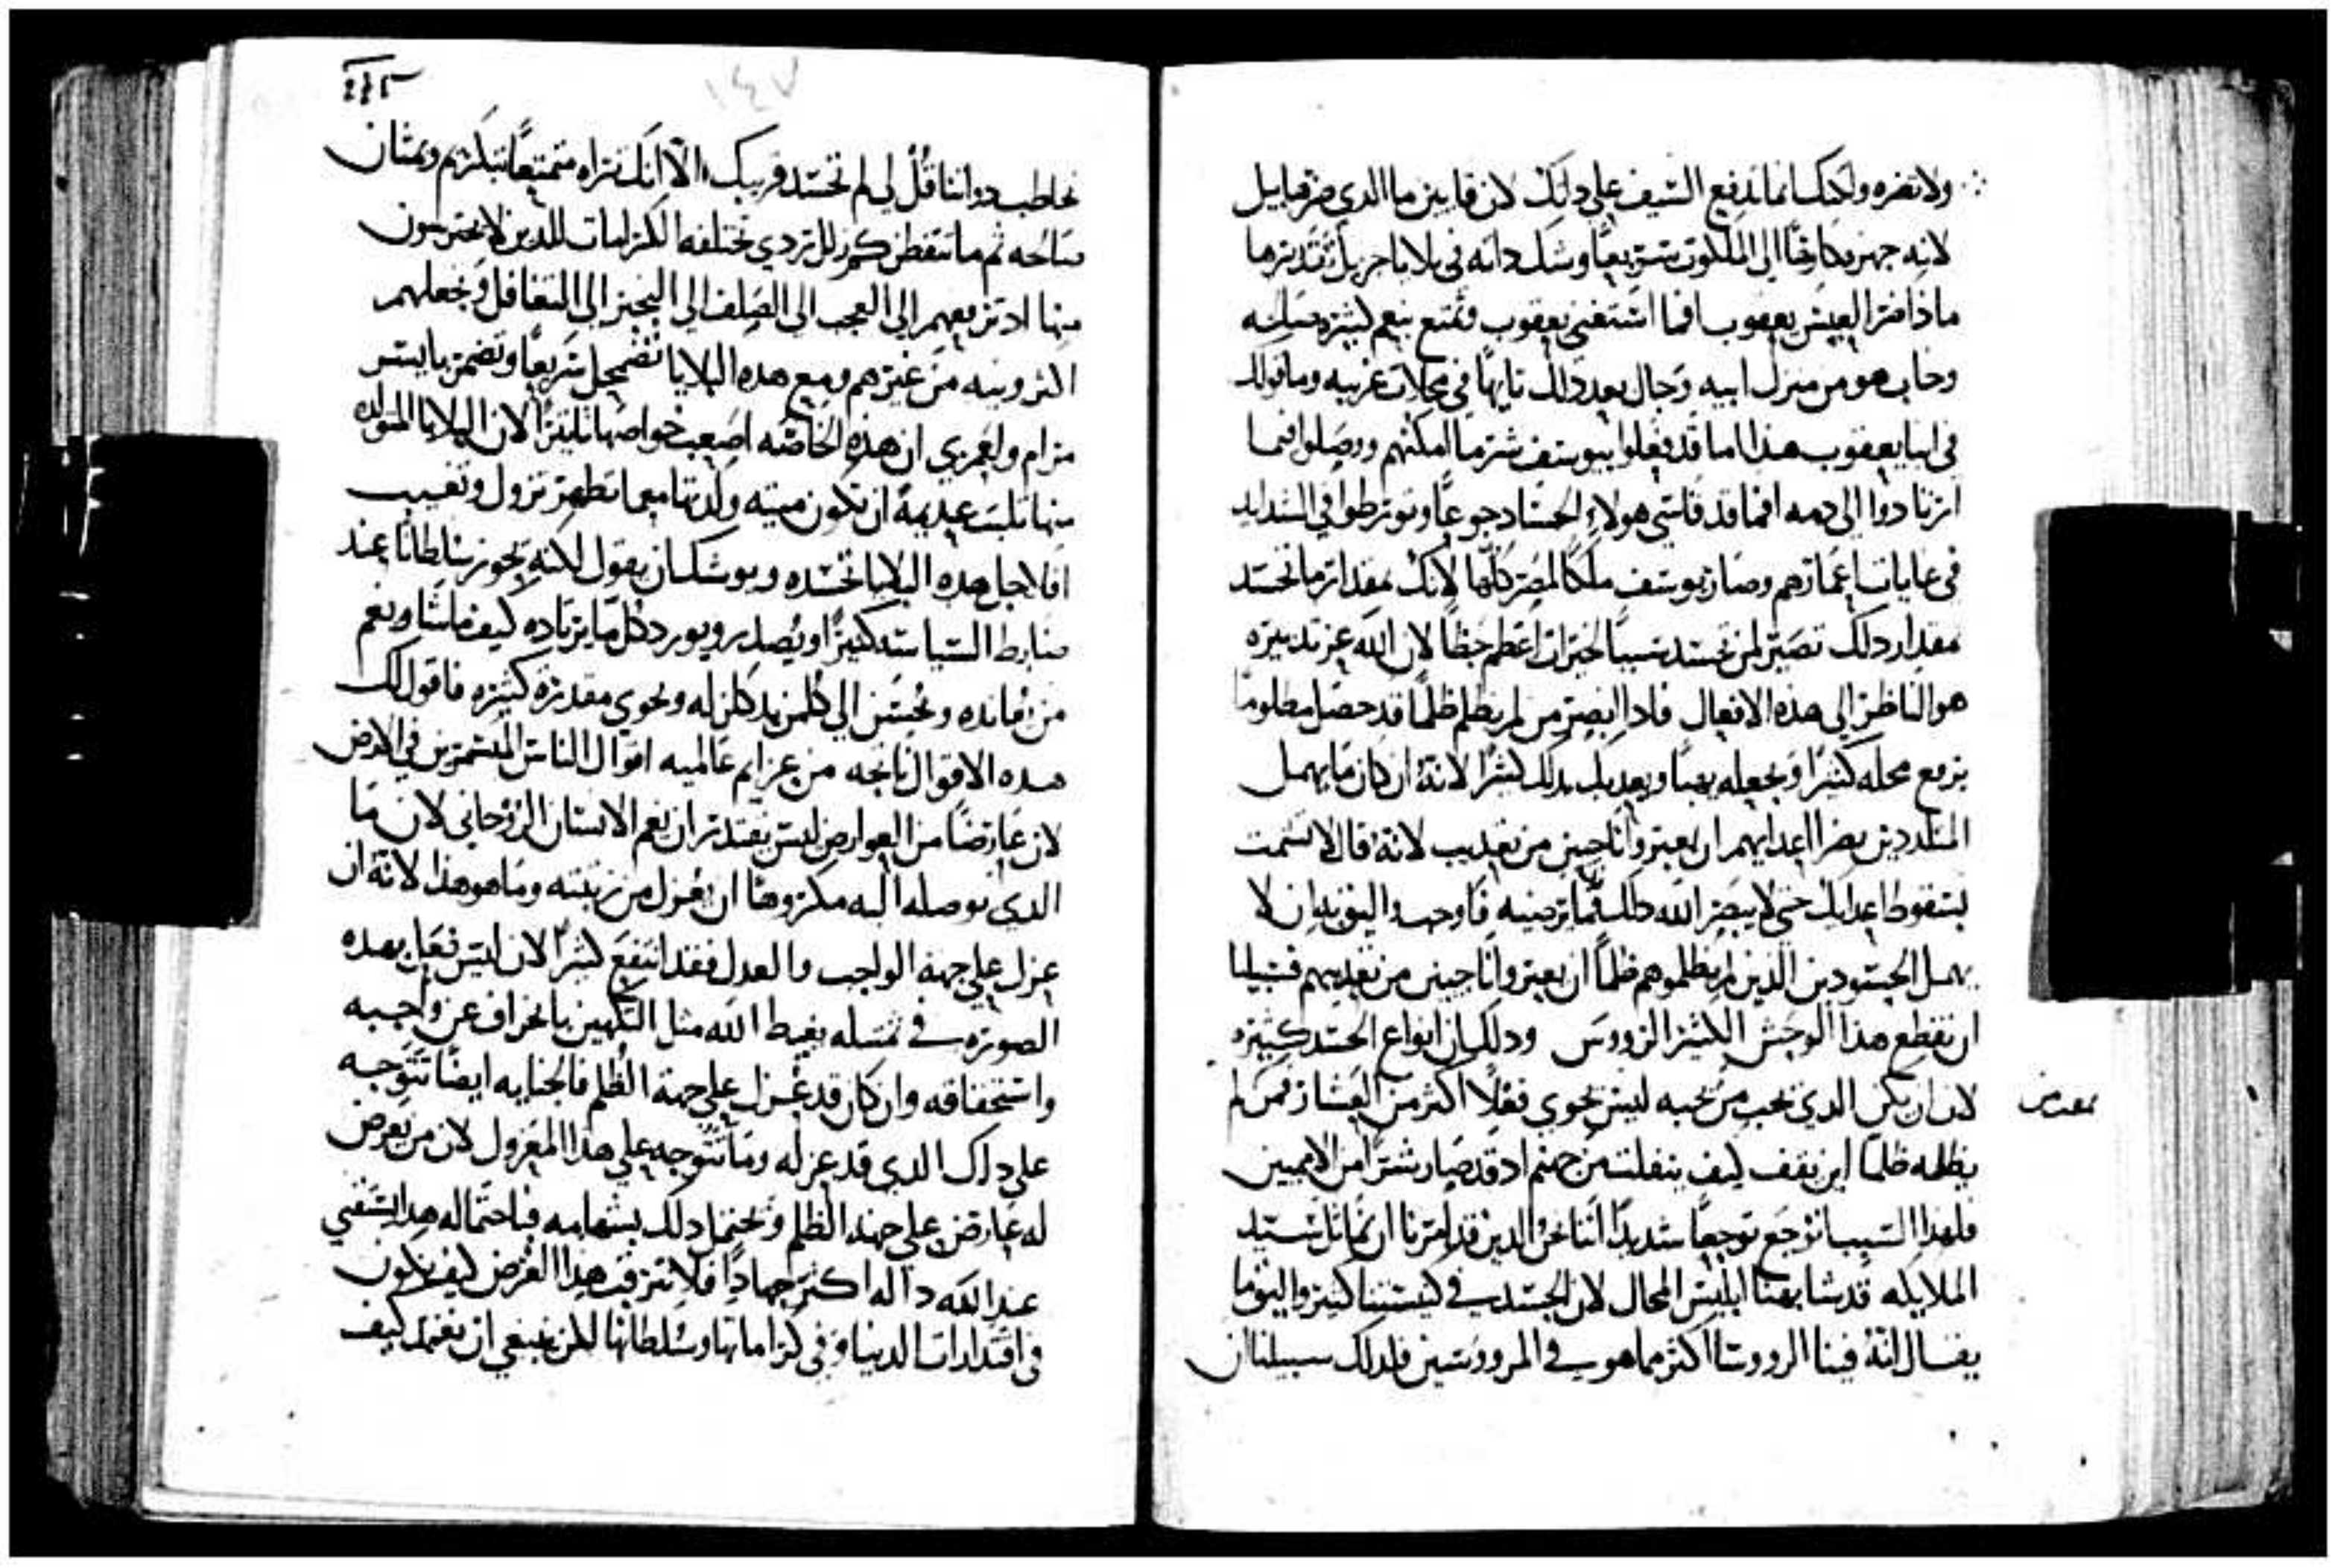 ولا تضره ولكنك انما تدفع السيف على ذلك لان قايين ما الذي ضر هابيل
لانه جهزه كارهًا الى الملكوت سريعًا وشك ذاته في بلايا جزيل تقديرها
ماذا ضر العيش يعقوب افما استغنى يعقوب وتمتع بنعم كثيره
وخاب هو من منزل ابيه وجال بعد ذلك تايهًا في محلات غريبه وما قولك
في ابنا يعقوب هذا اما قد فعلوا بيوسف شر ما امكنهم ووصلوا فيما
ارتادوا الى دمه افما قد قاسى هولاء الحساد جوعًا وتورطوا في الشدايد
في غايات اعمارهم وصار يوسف ملكًا لمصر كلها لانك بمقدار ما تحسد
بمقدار ذلك تصير لمن تحسد سببًا لخيرات اعظم حظًا لان الله عز تدبيره
هو الناظر الى هذه الافعال فاذا ابصر من لم يظلم ظلمًا قد حصل مظلومًا
يرفع محله كثيرًا ويجعله بهيًا ويعذبك بذلك كثيرًا لانه ان كان ما يهمل
المتلذذين بضر اعدايهم ان يعبروا ناجين من تعذيب لانه قال لا تشمت
بسقوط اعدايك حتى لا يبصر الله ذلك فما يرضيه فاوجب واليق به ان لا
يهمل الحسودين الذين لم يظلموهم ظلمًا ان يعبروا ناجين من تعذيبهم فسبيلنا
ان نقطع هذا الوحش الكثير الرووس وذلك ان انواع الحسد كثيره
لان ان يكن الذي يحب من يحبه ليس يحوي فعلًا اكثر من العشار فمن لم
يظلمه ظلمًا اين يقف كيف يتفلت من جهنم اذ قد صار شرًا من الامميين
فلهذا السبب اتوجع توجعًا شديدًا اننا نحن الذين قد امرنا ان نماثل سيد
الملايكه قد شابهنا ابليس المحال لان الحسد في كنيستنا كثير واليق ما
يقال انه فينا الرووسا اكثر مما هو في المرووسين فلذلك سبيلنا ان
١٤٧
نخاطب ذواتنا قل لي لم تحسد قريبك الا انك تراه متمتعًا بتكريم
ثم ما تتفطن كم زلل تردي تختلقه الكرامات للذين لا يحترسون
منها اذ ترفعهم الى العجب الى الصلف الى التجبر الى التغافل وتجعلهم
اكثر ونيه من غيرهم ومع هذه البلايا تضمحل سريعًا وتضمر بايسر
مرام ولعمري ان هذه الخاصه اصعب خواصها تاثيرًا لان البلايا المتولده
منها تلبث عديمةً ان تكون ميته ولذتها معما تظهر تزول وتغيب
افلاجل هذه البلايا تحسده ويوشك ان يقول لانه يحوز سلطانًا عند
ضابط السياسه كبيرًا ويصدر ويورد كل ما يرتاده كيف ما شا وينعم
ويحسن الى كلمن يذكلن له ويحوي مقدره كثيره فاقول لك
هذه الاقوال ناتجه من عزايم عالميه اقوال الناس المستمرين في الارض
لان عارضًا من العوارض ليس يقتدر ان يغم الانسان الروحاني لان ما
الذي يوصله اليه مكروهًا ان يعزل من رتبته وما هو هذا لانه ان
عزل على جهة الواجب والعدل فقد انتفع كثيرًا لان ليس فعل بهذه
الصوره يغيظ الله مثل التكهين بانحراف عن واجبه
واستحقاقه وان كان قد عزل على جهة الظلم فالجنايه ايضًا تتوجه
على ذاك الذي قد عزله وما تتوجه على هذا المعزول لان من يعرض
له عارض على جهة الظلم ويحتمل ذلك بشهامه فباحتماله هذا يستفني
عند الله داله اكثر جهادًا فلا نترقب هذا الغرض كيف نكون
في اقتدارات الدنيا وفي كراماتها وسلطانها لكن ينبغي ان نعتمد كيف